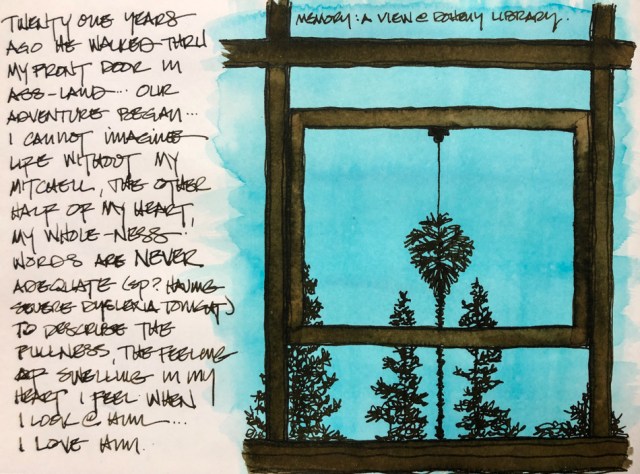 TWENTY ONE YEARS
AGO HE WALKED THRU
MY FRONT DOOR IN
ASS-LAND... OUR
ADVENTURE BEGAN...
I CANNOT IMAGINE
LIFE WITHOUT MY
MITCHELL, THE OTHER
HALF OF MY HEART,
MY WHOLE-NESS.
WORDS ARE NEVER
ADEQUATE (SP? HAVING
SEVERE DYSLEXIA TONIGHT)
TO DESCRIBE THE
FULLNESS, THE FEELING
OF SWELLING IN MY
HEART I FEEL WHEN
I LOOK @ HIM...
I LOVE HIM.
MEMORY: A VIEW @ DOHENY LIBRARY.